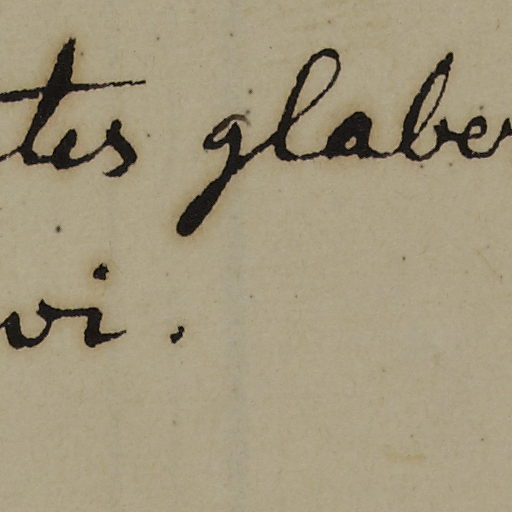 tes glaber
vi.